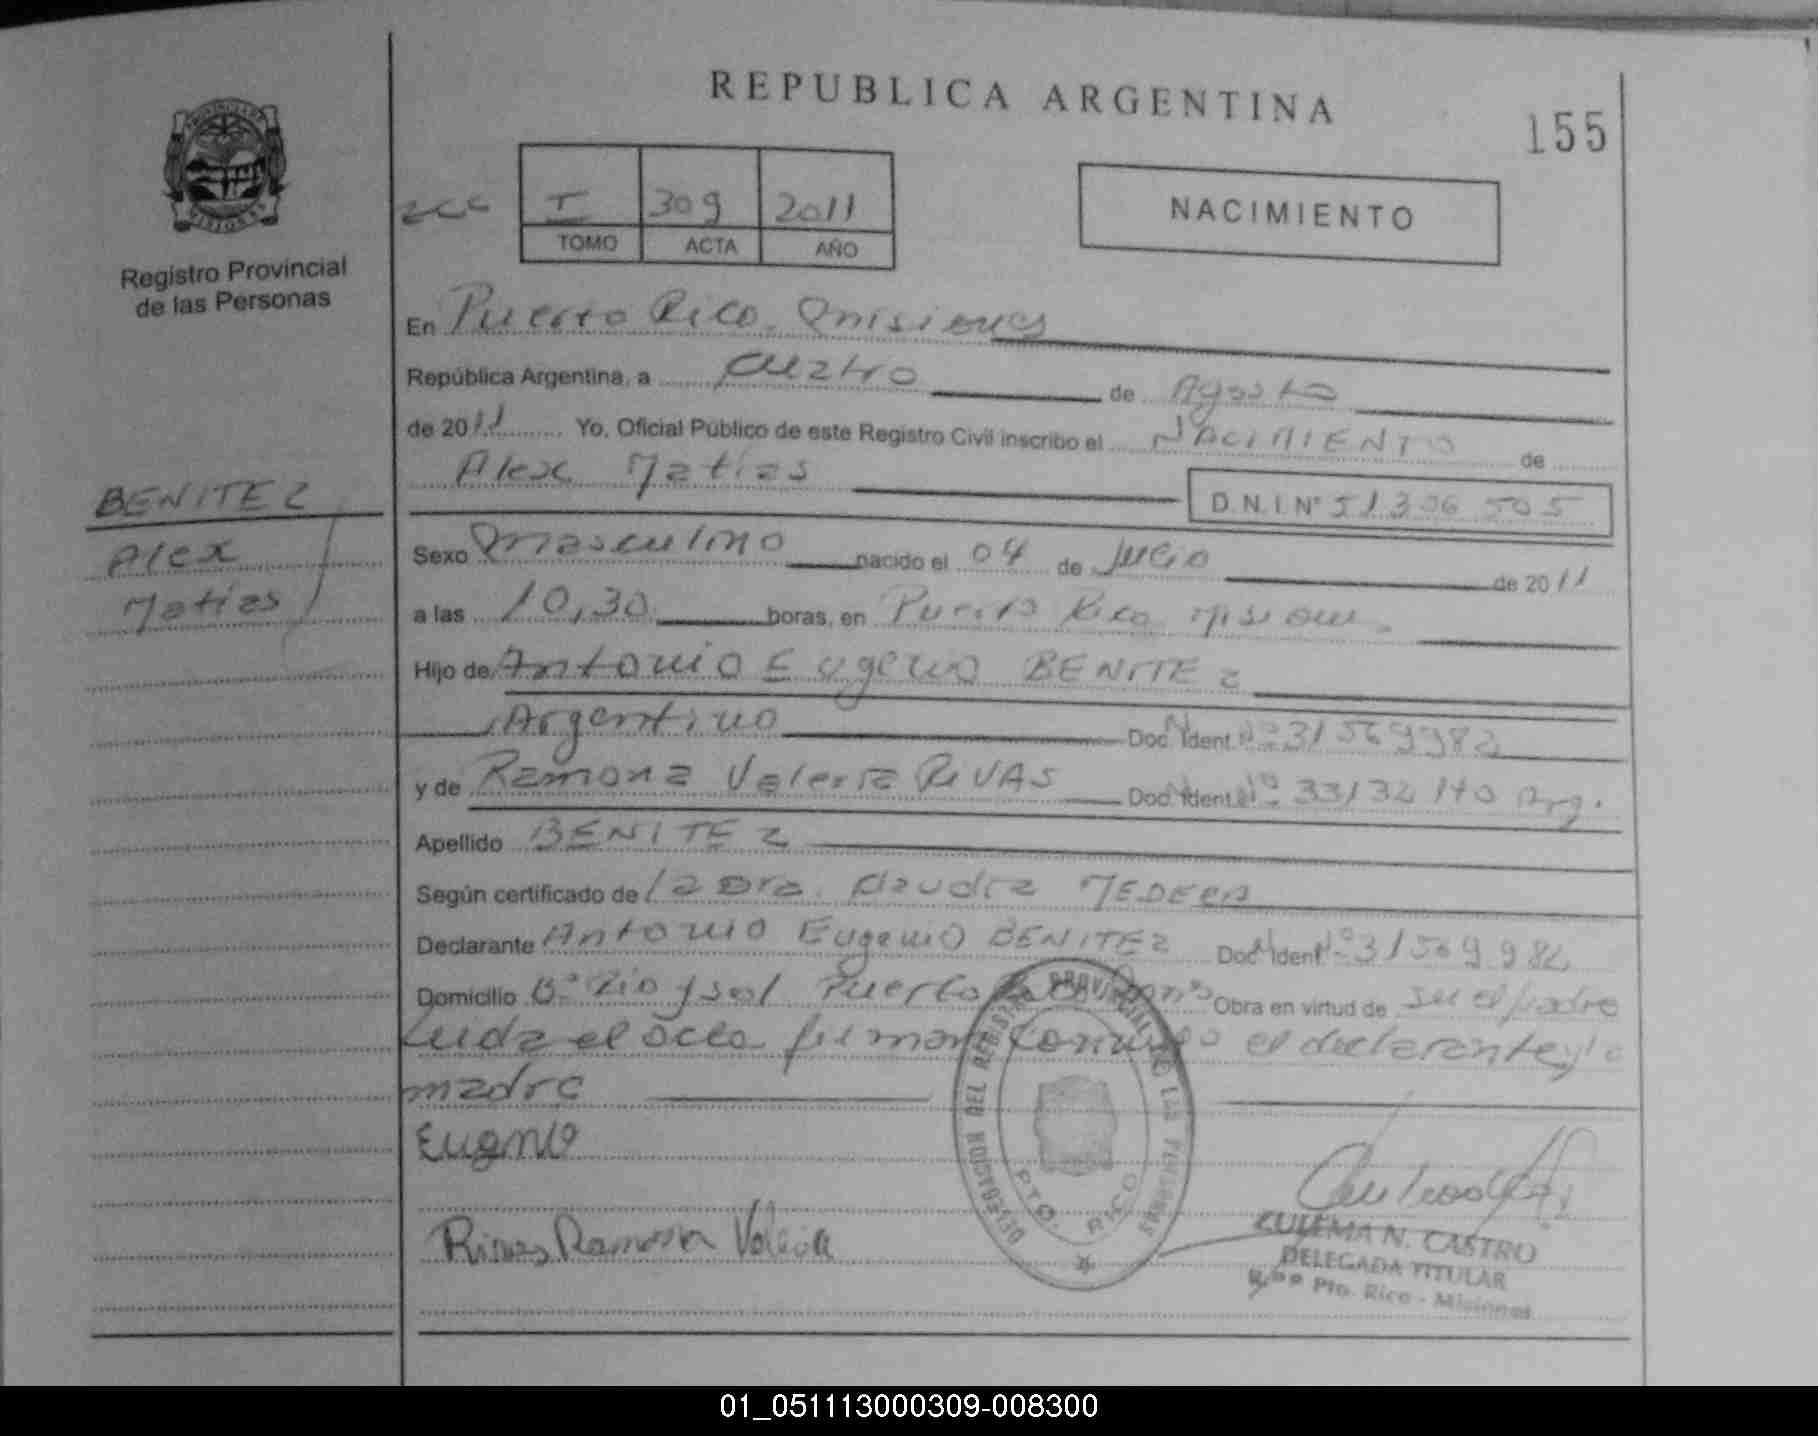 REPUBLICA ARGENTINA
155
I 309 2011
TOMO ACTA AÑO
NACIMIENTO
Registro Provincial
de las Personas
En Puerto Rico, Misiones
República Argentina, a cuatro de Agosto
de 2011 Yo, Oficial Público de este Registro Civil inscribo el NACIMIENTO de
Alex Matias
D.N.I. Nº 51 306 505
BENITEZ
Alex
Matias
Sexo Masculino nacido el 04 de Julio de 2011
a las 10,30 horas, en Puerto Rico Misiones
Hijo de Antonio Eugenio BENITEZ
Argentino Doc. Ident. Nº 31569982
y de Ramona Valeria RIVAS Doc. Ident. Nº 33132140 Arg.
Apellido BENITEZ
Según certificado de la Dra. Claudia
Declarante Antonio Eugenio BENITEZ Doc. Ident. Nº 31569982
Domicilio Bº Rio y sol Puerto Obra en virtud de ser el padre
Leida el acta firman el declarante y la
madre
Eugenio
Rivas Ramona Valeria
DELEGACION DEL REGISTRO PROVINCIAL DE LAS PERSONAS
PTO. RICO
ZULEMA N. CASTRO
DELEGADA TITULAR
Pto. Rico - Misiones
01_051113000309-008300